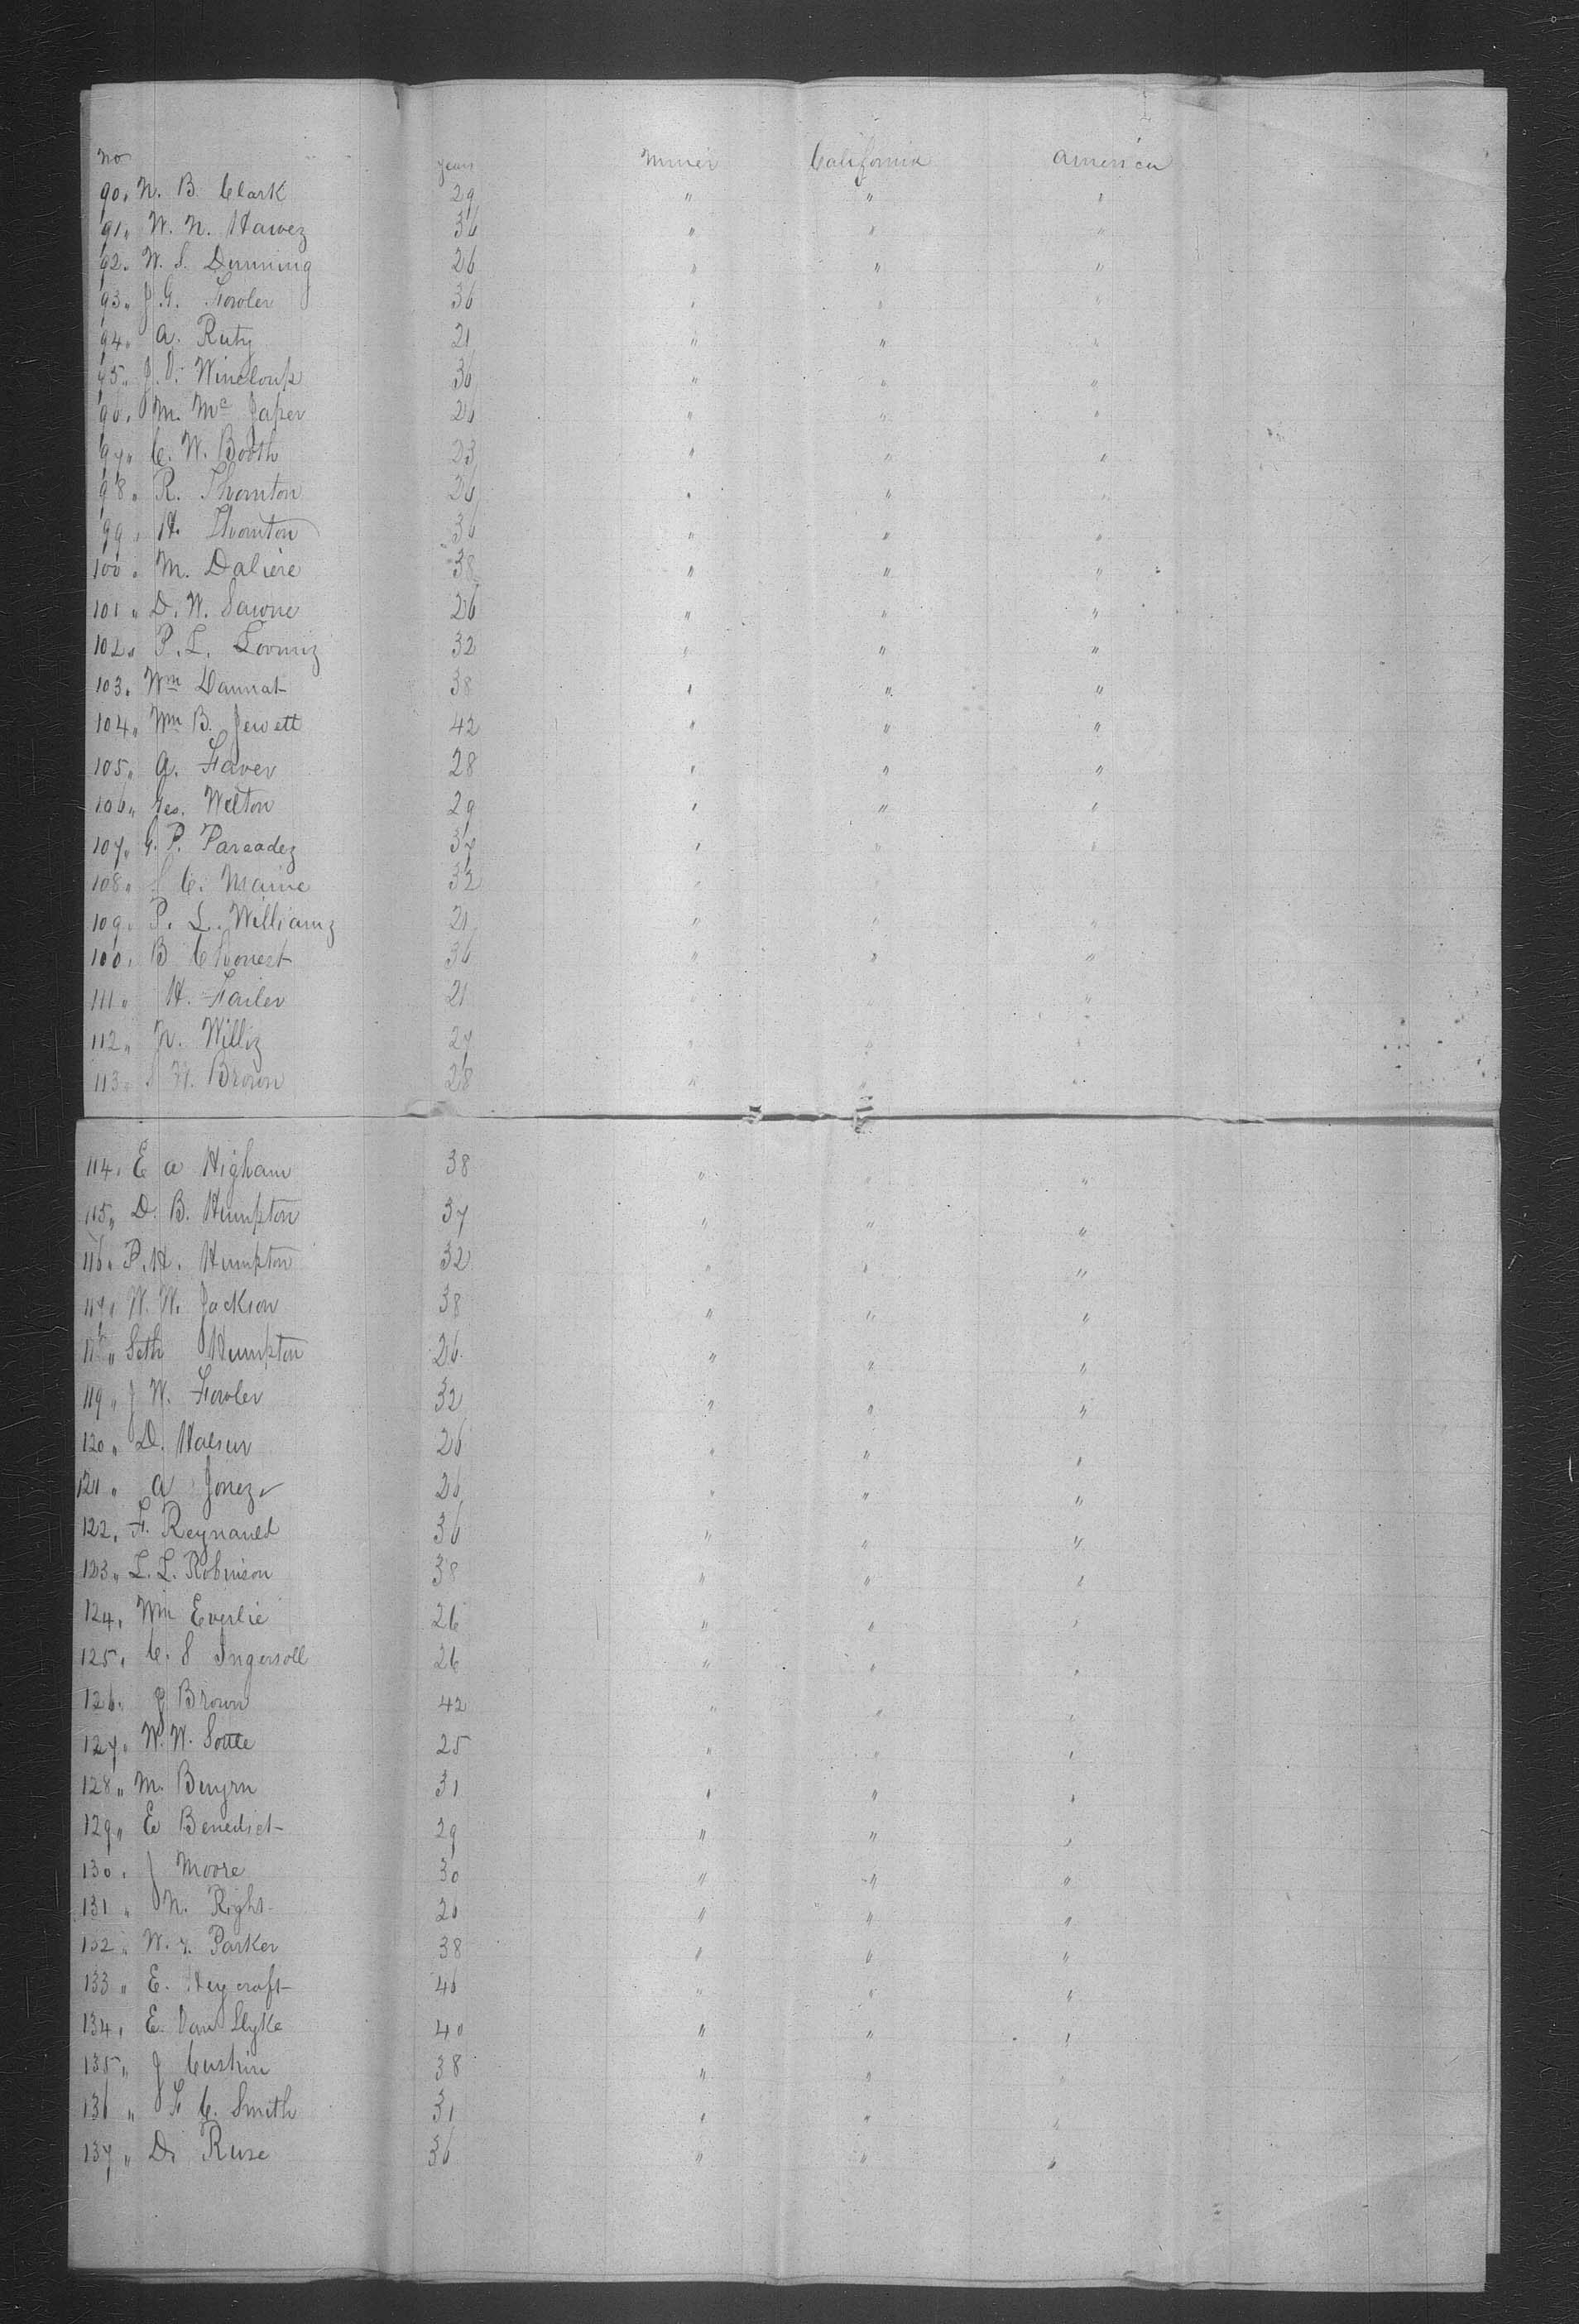 No years Miner California America
90. N. B. Clark 29 " " "
91. W. N. Hawez 36 " " "
92. W. S. Dunning 26 " " "
93. J. G. Fowler 36 " " "
94. A. Rutz 21 " " "
95. J. V. Wineloup 36 " " "
96. M. Mc Japer 26 " " "
97. C. W. Booth 23 " " "
98. R. Thornton 26 " " "
99. H. Thornton 36 " " "
100. M. Daliere 38 " " "
101. D. W. Sawne 26 " " "
102. P. L. Loomiz 32 " " "
103. Wm Dannat 38 " " "
104. Wm B. Jewett 42 " " "
105. G. Faver 28 " " "
106. Geo. Welton 29 " " "
107. G. P. Paraadez 37 " " "
108. S C. Maine 32 " " "
109. P. L. Williamz 21 " " "
100. B Chonest 36 " " "
111. H. Failer 21 " " "
112. N. Williz 27 " " "
113. S W. Brown 28 " " "
114. E A Higham 38 " " "
115. D. B. Humpton 37 " " "
116. P. H. Humpton 32 " " "
117. W. W. Jackson 38 " " "
118 " Seth Humpton 26 " " "
119 " J W. Fowler 32 " " "
120 " D. Halsur 26 " " "
121 " A Jonez 26 " " "
122. F. Reynaued 36 " " "
123 " L. L. Robinson 38 " " "
124. Wm Everlie 26 " " "
125. C. S Ingersoll 26 " " "
126. J Brown 42 " " "
127. W. W. Sottle 25 " " "
128 " M. Buyrn 31 " " "
129 " E Benedict 29 " " "
130. J Moore 30 " " "
131 " N. Right 20 " " "
132 " W. F. Parker 38 " " "
133 " E. Heycraft 46 " " "
134. E. Van Slyke 40 " " "
135 " J Cushin 38 " " "
136 " F C. Smith 31 " " "
137 " D. Ruse 36 " " "